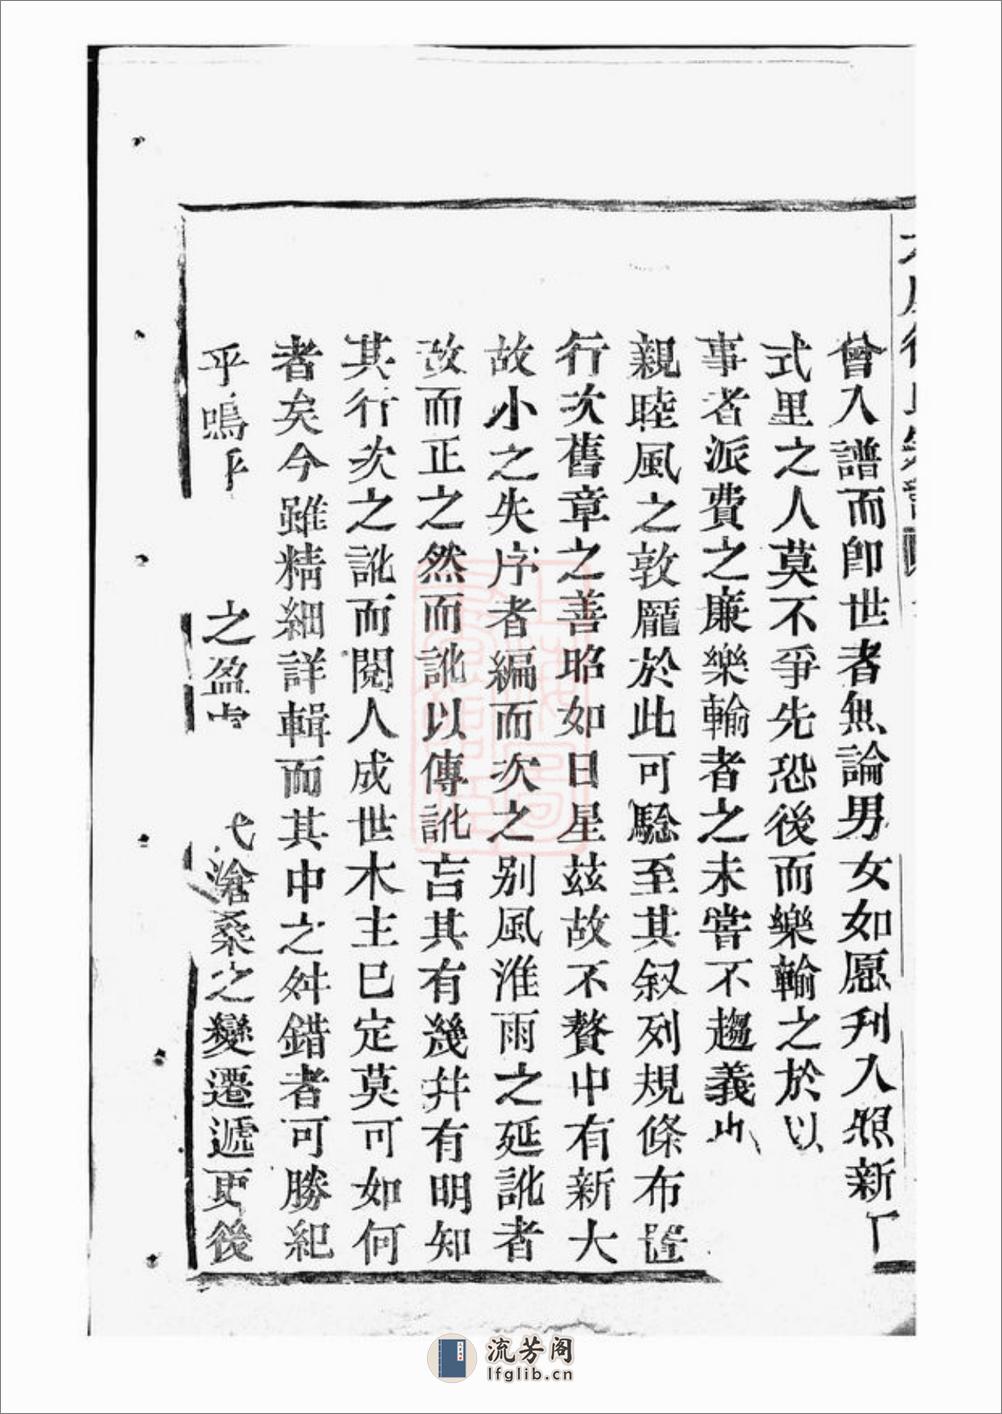 曾入譜而卽世者無論男女如愿刋入照新
式里之人莫不爭先恐後而樂輸之於以
事者派費之廉樂輸者之未嘗不趨義
親睦風之敦龐於此可騐至其叙列規條布置
行次舊章之善昭如日星玆故不贅中有新大
故小之失序者編而次之别風淮雨之延訛者
攷而正之然而訛以傳訛言其有㡬幷有明知
其行次之訛而閱人成世木主已定莫可如何
者矣今雖精細詳輯而其中之舛錯者可勝紀
乎嗚乎 之盈 滄桑之變遷遞更後
流芳阁
lfglib.cn